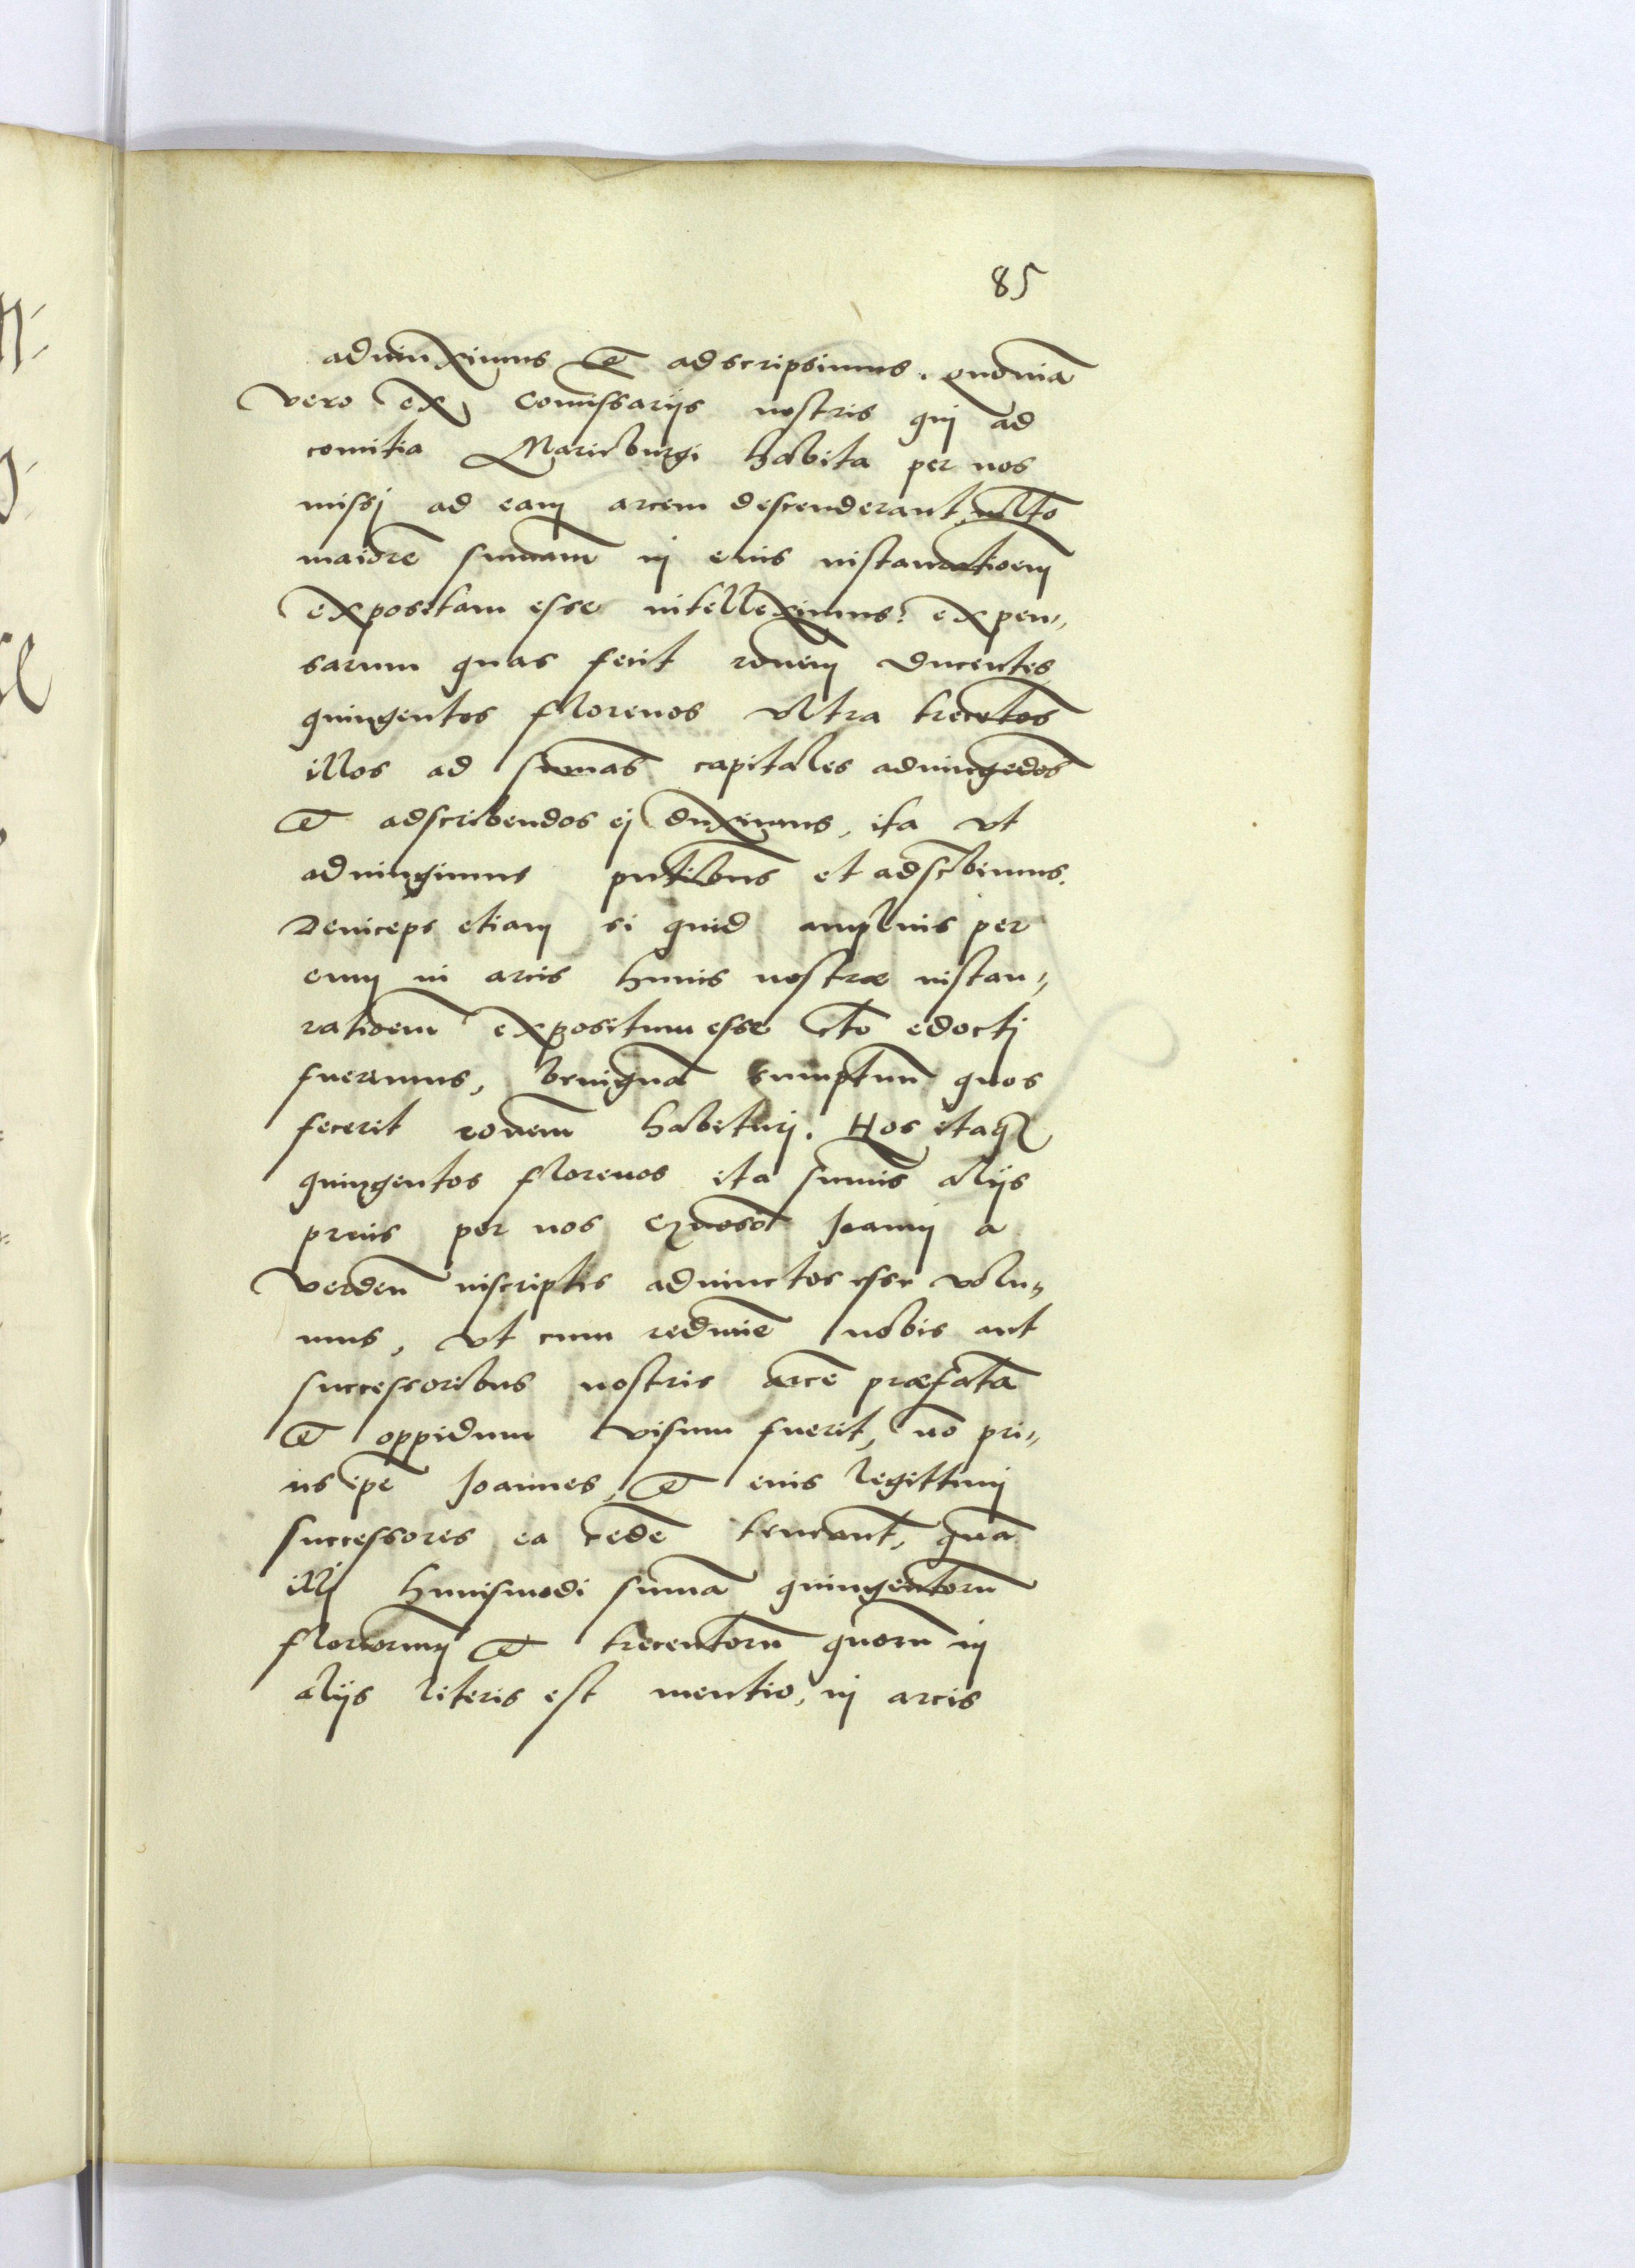 85
adiunximus et adscripsimus. quoniã
vero ex Comissarijs nostris qui ad
comitia Mariæburgi habita per nos
missi ad eam arcem descenderant, mlto
maiorẽ summam in eius instauratioem
expositam esse intelleximus: expen„
sarum quas fecit ronem ducentes
quingentos florenos ultra trecẽtos
illos ad sumas capitales adiungẽdos
et adscribendos ei duximus, ita ut
adiungimus pntibus et adscbimus.
Deinceps etiam si quid amplius per
eum in arcis huius nostræ instau„
ratioem expositum esse cto edocti
fuerimus, benignã sumptuũ quos
fecerit ronem habituri. Hos itaq
quingentos florenos ita sumis alijs
prius per nos Joanni a
Verden inscriptis adiunctos esse volu„
mus, ut cum redimẽ nobis aut
successoribus nostris arcẽ præfatã
et oppidum visum fuerit, nõ pri„
us ipẽ Joannes, et eius legittimi
successores ea cedẽ teneant, quã
illi huiusmodi summã quingentorũ
florenorum et trecentorũ quorũ in
alijs literis est mentio, in arcis